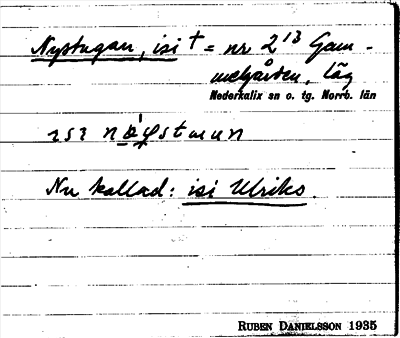 Nystugan, isi † = nr 2¹³ Gam-
melgården, låg
Nederkalix sn o. tg. Norrb. län
Nu kallad: isi Ulriks.
RUBEN DANIELSSON 1935